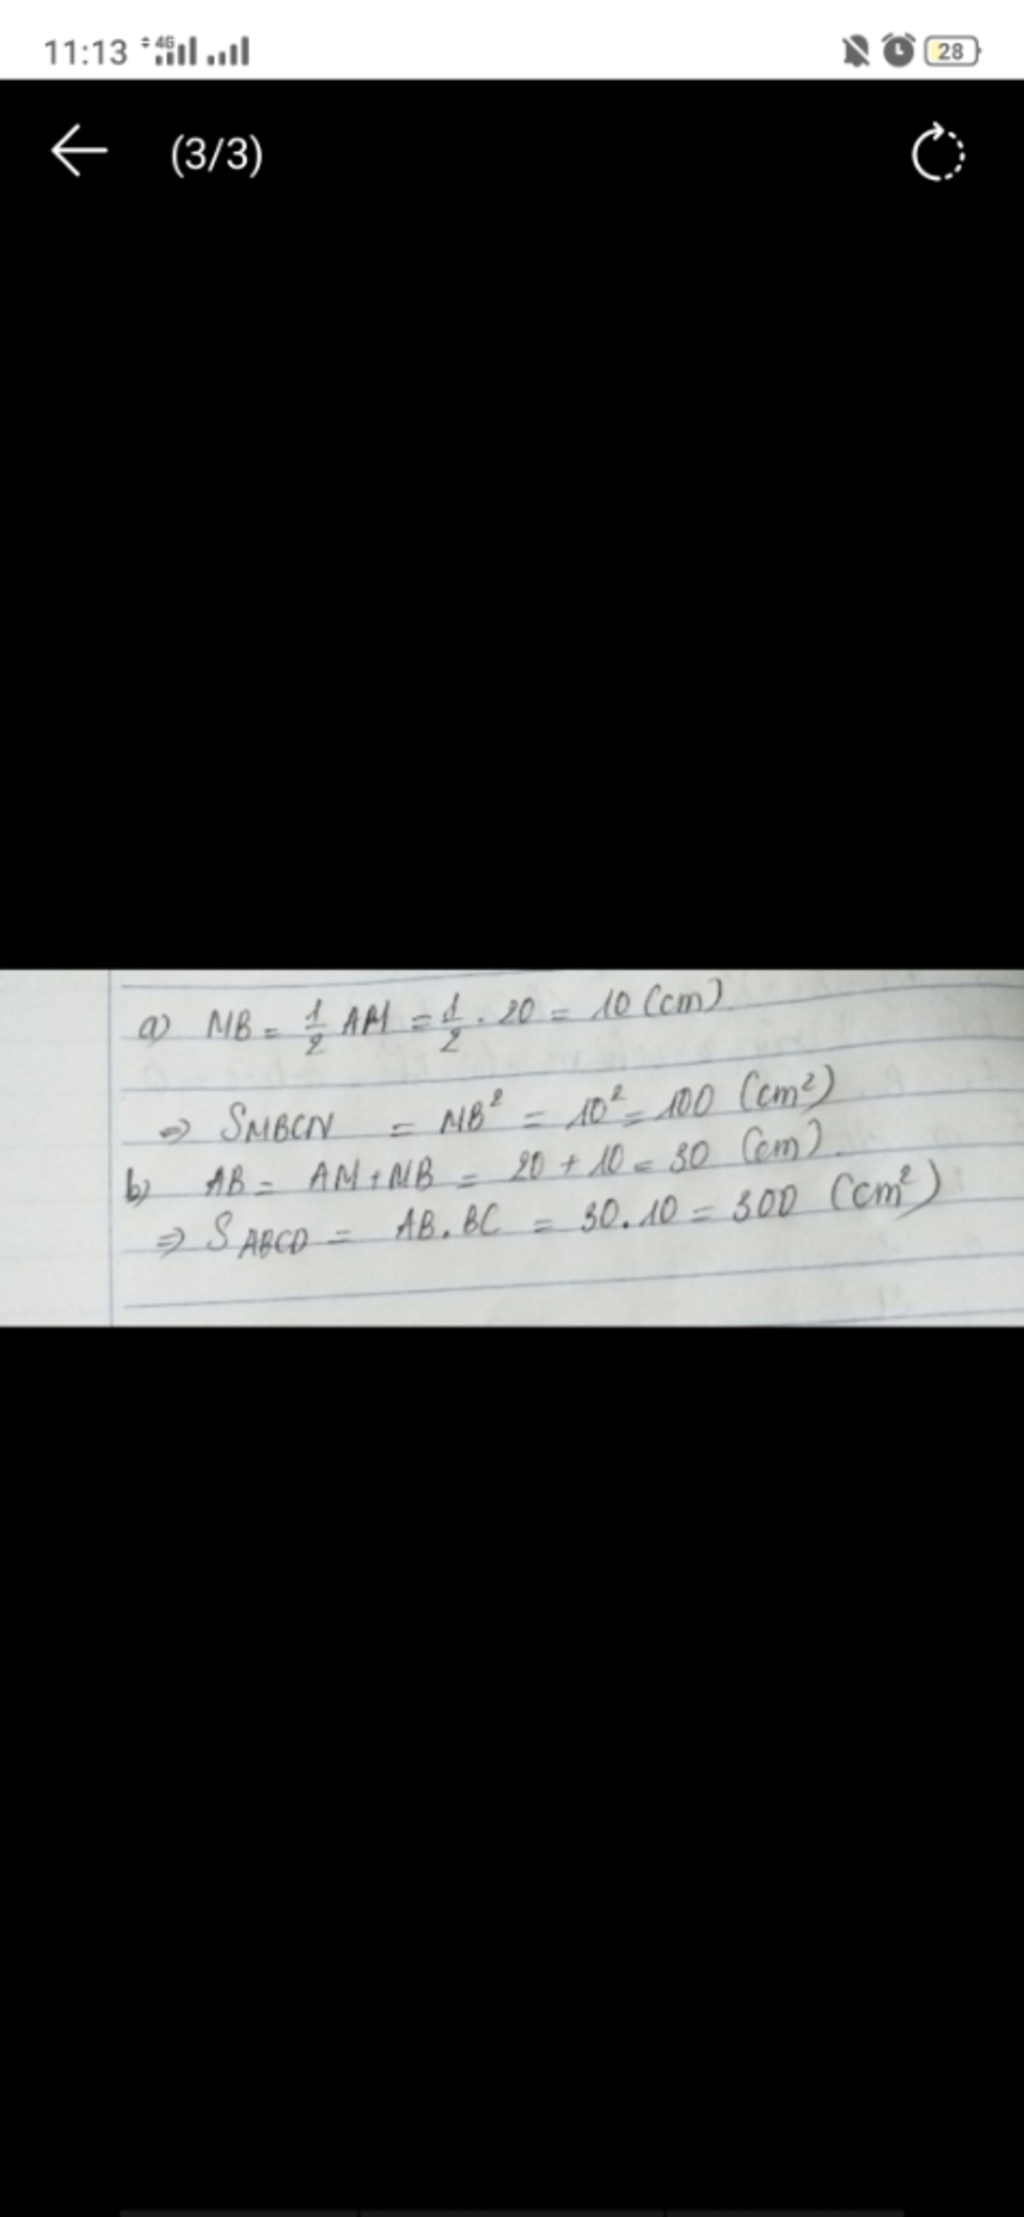 11:13 4G 28
(3/3)
a) MB = 1/2 AM = 1/2 . 20 = 10 (cm)
=> SMBCN = MB² = 10² = 100 (cm²)
b) AB = AM + MB = 20 + 10 = 30 (cm).
=> SABCD = AB. BC = 30.10 = 300 (cm²)